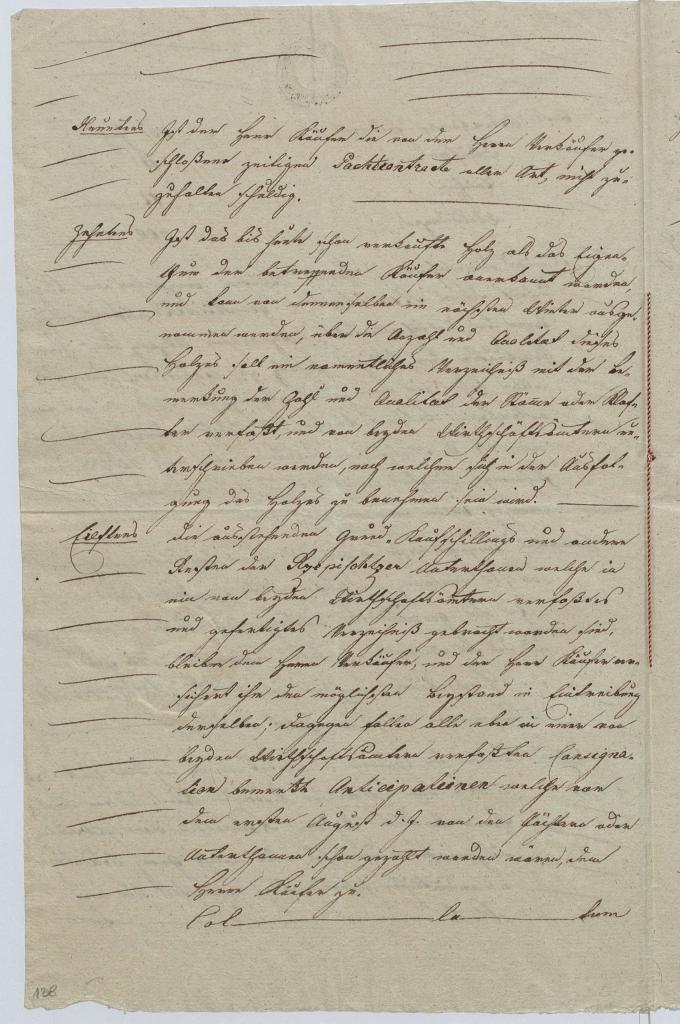 Neuntens Ist der Herr Käufer die von dem Herrn Verkäufer ge-
schloßene zeitigen Pachtcontracte aller Art, nicht zu-
zuhalten schuldig.
Zehntens Ist das bis heute schon verkaufte Holz als das Eigen-
thum der betreffenden Käufer anerkannt worden,
und kann von denenselben im nächsten Winter ausge-
nommen werden, über die Anzahl und Qualitat dieses
Holzes soll ein namentliches Verzeichniß mit der Be-
merkung der Zahl und Qualitat der Stäme oder Klaf-
ter verfaßt, und von beyden Wirthschaftsämtern un-
terschrieben werden, nach welchem sich in der Ausfol-
gung des Holzes zu benehmen sein wird.
Eilftens die ausstehenden Grund-Kaufschillings und andere
Resten der Unterthanen welche in
ein von beyden Wirthschaftsämtern verfaßtes
und gefertigtes Verzeichniß gebracht worden sind,
bleiben dem Herrn Verkäufer, und der Herr Käufer ver-
sichert ihm den möglichsten Beystand in Eintreibung
derselben; dagegen fallen alle eben in einer von
beyden Wirthschaftsämtern verfaßten Consigna-
tion bemerkte Anticipationen welche vor
dem ersten August d. J. von den Pächtern oder
Unterthanen schon gezahlt worden wären, dem
Herrn Käufer zu.
Col la tum
138